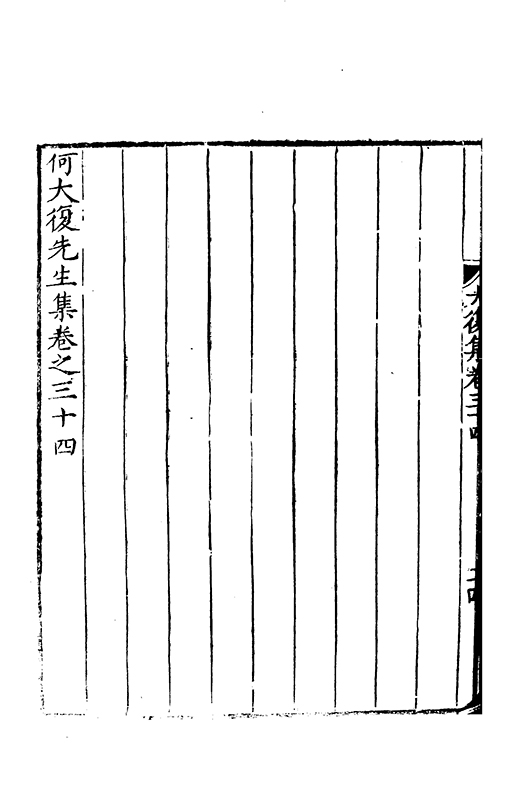 大復集卷三十四
何大復先生集卷之三十四